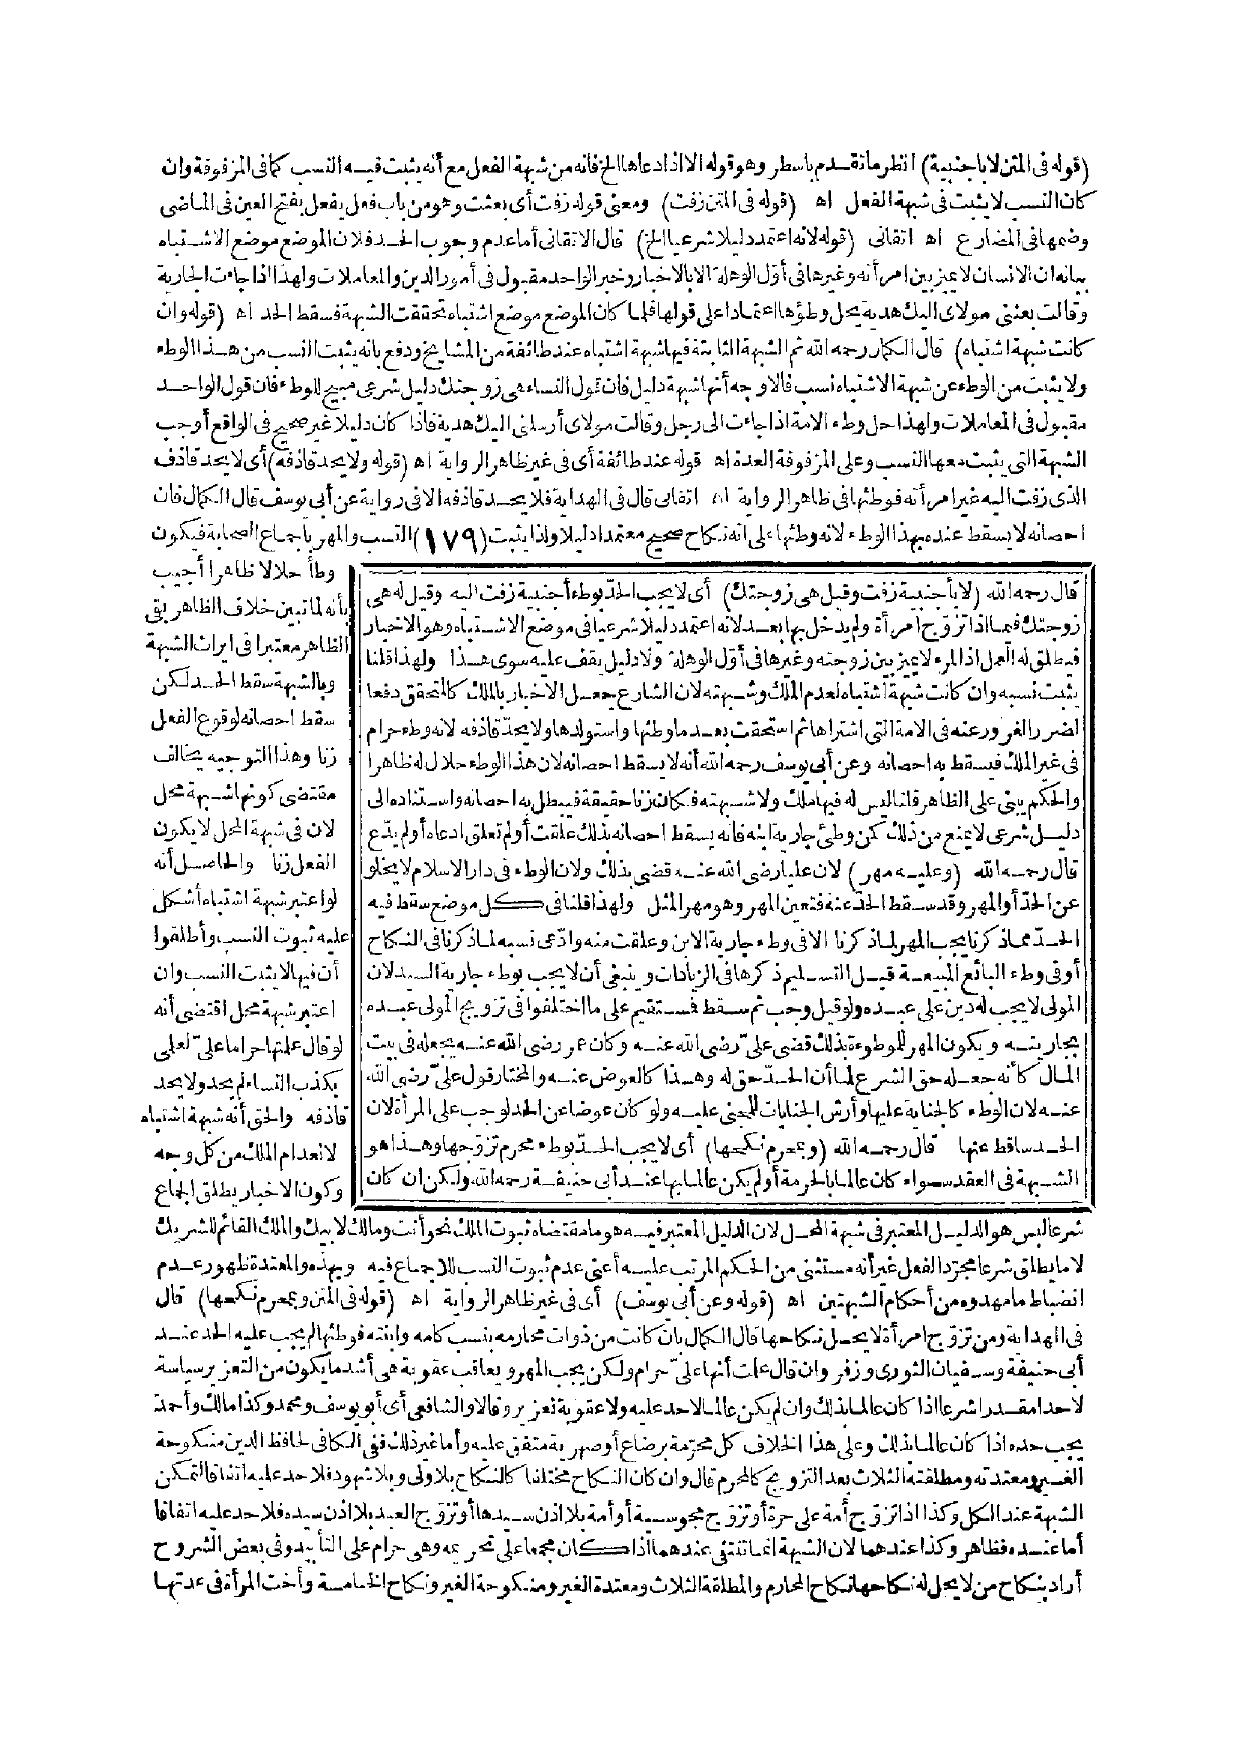 (قوله في المتن لا بأجنبية) انظر ما تقدم بأسطر وهو قوله الا اذا ادعاها الخ فانه من شبهة الفعل مع أنه يثبت فيه النسب كما في المزفوفة وان
كان النسب لا يثبت في شبهة الفعل اه (قوله في المتن زفت) ومعنى قوله زفت أى بعثت وهو من باب فعل يفعل بفتح العين في الماضى
وضمها في المضارع اه اتقانى (قوله لانه اعتمد دليلا شرعيا الخ) قال الاتقانى أما عدم وجوب الحد فلان الموضع موضع الاشتباه
بيانه ان الانسان لا يميز بين امرأته وغيرها في أول الوهلة الا بالاخبار وخبر الواحد مقبول في أمور الدين والمعاملات ولهذا اذا جاءت الجارية
وقالت بعثنى مولاى اليك هدية يحل وطؤها اعتمادا على قولها فلما كان الموضع موضع اشتباه تحققت الشبهة فسقط الحد اه (قوله وان
كانت شبهة اشتباه) قال الكمال رحمه الله ثم الشبهة الثابتة فيها شبهة اشتباه عند طائفة من المشايخ ودفع بانه يثبت النسب من هذا الوطء
ولا يثبت من الوطء عن شبهة الاشتباه نسب فالاوجه أنها شبهة دليل فان قول النساء هى زوجتك دليل شرعى مبيح للوطء فان قول الواحد
مقبول في المعاملات ولهذا حل وطء الامة اذا جاءت الى رجل وقالت مولاى أرسلنى اليك هدية فاذا كان دليلا غير صحيح في الواقع أوجب
الشبهة التى يثبت معها النسب وعلى المزفوفة العدة اه قوله عند طائفة أى في غير ظاهر الرواية اه (قوله ولا يحد قاذفه) أى لا يحد قاذف
الذى زفت اليه غير امرأته فوطئها في ظاهر الرواية اه اتقانى قال في الهداية فلا يحد قاذفه الا في رواية عن أبى يوسف قال الكمال فان
احصانه لا يسقط عنده بهذا الوطء لانه وطئها على انه نكاح صحيح معتمدا دليلا ولذا يثبت (١٧٩) النسب والمهر بأجماع الصحابة فيكون
وطأ حلالا ظاهرا أجيب
بأنه لما تبين خلاف الظاهر بقى
الظاهر معتبرا في ايراث الشبهة
وبالشبهة سقط الحد لكن
سقط احصانه لوقوع الفعل
زنا وهذا التوجيه يخالف
مقتضى كونها شبهة محل
لان في شبهة المحل لا يكون
الفعل زنا والحاصل أنه
لو اعتبر شبهة اشتباه أشكل
عليه ثبوت النسب وأطلقوا
أن فيها لا يثبت النسب وان
اعتبر شبهة محل اقتضى أنه
لو قال علمتها حراما على لعلمى
بكذب النساء لم يحد ولا يحد
قاذفه والحق أنه شبهة اشتباه
لانعدام الملك من كل وجه
وكون الاخبار يطلق الجماع
قال رحمه الله (لا بأجنبية زفت وقيل هى زوجتك) أى لا يجب الحد بوطء أجنبية زفت اليه وقيل له هى
زوجتك فيما اذا تزوج امرأة ولم يدخل بها بعد لانه اعتمد دليلا شرعيا في موضع الاشتباه وهو الاخبار
فيطلق له العمل اذ المرء لا يميز بين زوجته وغيرها في أول الوهلة ولا دليل يقف عليه سوى هذا ولهذا قلنا
يثبت نسبه وان كانت شبهة اشتباه لعدم الملك وشبهته لان الشارع جعل الاخبار بالملك كالمتحقق دفعا
لضرر الغرور عنه في الامة التى اشتراها ثم استحقت بعد ما وطئها واستولدها ولا يحد قاذفه لانه وطء حرام
في غير الملك فيسقط به احصانه وعن أبى يوسف رحمه الله أنه لا يسقط احصانه لان هذا الوطء حلال له ظاهرا
والحكم يبنى على الظاهر قلنا ليس له فيها ملك ولا شبهته فكان زنا حقيقة فيبطل به احصانه واستناده الى
دليل شرعى لا يمنع من ذلك كمن وطئ جارية ابنه فانه يسقط احصانه بذلك علقت أو لم تعلق ادعاه أو لم يدع
قال رحمه الله (وعليه مهر) لان عليا رضى الله عنه قضى بذلك ولان الوطء في دار الاسلام لا يخلو
عن الحد أو المهر وقد سقط الحد عنه فتعين المهر وهو مهر المثل ولهذا قلنا في كل موضع سقط فيه
الحد مما ذكرنا يجب المهر لما ذكرنا الا في وطء جارية الابن وعلقت منه وادعى نسبه لما ذكرنا في النكاح
أو في وطء البائع المبيعة قبل التسليم ذكرها في الزيادات وينبغى أن لا يجب بوطء جارية السيد لان
المولى لا يجب له دين على عبده ولو قيل وجب ثم سقط فمستقيم على ما اختلفوا في تزويج المولى عبده
بجاريته ويكون المهر للموطوءة بذلك قضى على رضى الله عنه وكان عمر رضى الله عنه يجعله في بيت
المال كأنه جعله حق الشرع لما أن الحد حق له وهذا كالعوض عنه والمختار قول على رضى الله
عنه لان الوطء كالجناية عليها وأرش الجنايات للمجنى عليه ولو كان عوضا عن الحد لوجب على المرأة لان
الحد ساقط عنها قال رحمه الله (وبمحرم نكحها) أى لا يجب الحد بوطء محرم تزوجها وهذا هو
الشبهة في العقد سواء كان عالما بالحرمة أو لم يكن عالما بها عند أبى حنيفة رحمه الله ولكن ان كان
شرعا ليس هو الدليل المعتبر في شبهة المحل لان الدليل المعتبر فيه هو ما مقتضاه ثبوت الملك نحو أنت ومالك لابيك والملك القائم للشريك
لا ما يطلق شرعا مجرد الفعل غير أنه مستثنى من الحكم المرتب عليه أعنى عدم ثبوت النسب للاجماع فيه وبهذه والمعتدة ظهور عدم
انضباط ما مهدوه من أحكام الشبهتين اه (قوله وعن أبى يوسف) أى في غير ظاهر الرواية اه (قوله في المتن وبمحرم نكحها) قال
في الهداية ومن تزوج امرأة لا يحل نكاحها قال الكمال بان كانت من ذوات محارمه بنسب كامه وابنته فوطئها لم يجب عليه الحد عند
أبى حنيفة وسفيان الثورى وزفر وان قال علمت أنها على حرام ولكن يجب المهر ويعاقب عقوبة هى أشد ما يكون من التعزير سياسة
لا حدا مقدرا شرعا اذا كان عالما بذلك وان لم يكن عالما لا حد عليه ولا عقوبة تعزير وقالا والشافعى أى أبو يوسف ومحمد وكذا مالك وأحمد
يجب حده اذا كان عالما بذلك وعلى هذا الخلاف كل محرمة برضاع أو صهرية متفق عليه وأما غير ذلك ففى الكافى لحافظ الدين منكوحة
الغير ومعتدته ومطلقته الثلاث بعد التزويج كالمحرم قال وان كان النكاح مختلفا كالنكاح بلا ولى وبلا شهود فلا حد عليه اتفاقا لتمكن
الشبهة عند الكل وكذا اذا تزوج أمة على حرة أو تزوج مجوسية أو أمة بلا اذن سيدها أو تزوج العبد بلا اذن سيده فلا حد عليه اتفاقا
أما عنده فظاهر وكذا عندهما لان الشبهة انما تنتفى عندهما اذا كان مجمعا على تحريمه وهى حرام على التأبيد وفى بعض الشروح
أراد بنكاح من لا يحل له نكاحها نكاح المحارم والمطلقة الثلاث ومعتدة الغير ومنكوحة الغير ونكاح الخامسة وأخت المرأة في عدتها